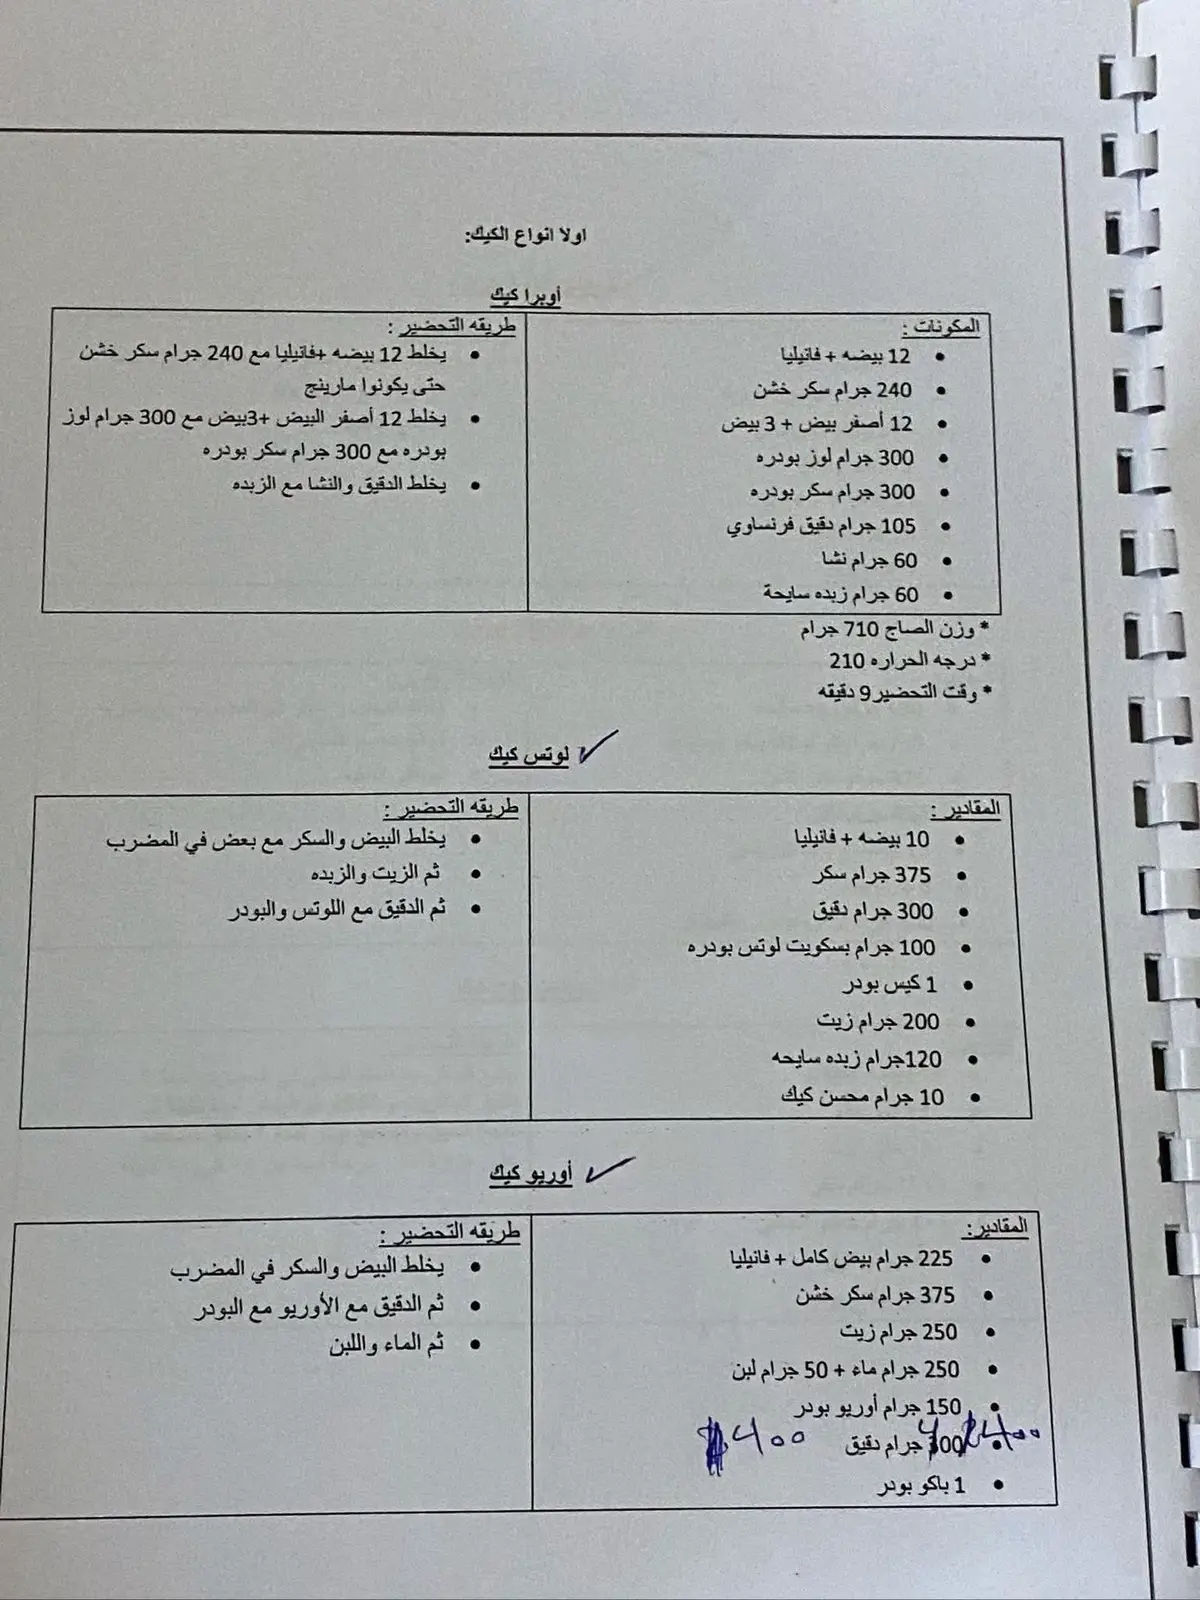 اولا انواع الكيك:
أوبرا كيك
المكونات :
• 12 بيضه + فانيليا
• 240 جرام سكر خشن
• 12 أصفر بيض + 3 بيض
• 300 جرام لوز بودره
• 300 جرام سكر بودره
• 105 جرام دقيق فرنساوي
• 60 جرام نشا
• 60 جرام زبده سايحة
طريقه التحضير :
• يخلط 12 بيضه +فانيليا مع 240 جرام سكر خشن
حتى يكونوا مارينج
• يخلط 12 أصفر البيض +3بيض مع 300 جرام لوز
بودره مع 300 جرام سكر بودره
• يخلط الدقيق والنشا مع الزبده
* وزن الصاج 710 جرام
* درجه الحراره 210
* وقت التحضير9 دقيقه
لوتس كيك
المقادير :
• 10 بيضه + فانيليا
• 375 جرام سكر
• 300 جرام دقيق
• 100 جرام بسكويت لوتس بودره
• 1 كيس بودر
• 200 جرام زيت
• 120جرام زبده سايحه
• 10 جرام محسن كيك
طريقه التحضير :
• يخلط البيض والسكر مع بعض في المضرب
• ثم الزيت والزبده
• ثم الدقيق مع اللوتس والبودر
أوريو كيك
المقادير:
• 225 جرام بيض كامل + فانيليا
• 375 جرام سكر خشن
• 250 جرام زيت
• 250 جرام ماء + 50 جرام لبن
• 150 جرام أوريو بودر
• 300 جرام دقيق 400
• 1 باكو بودر
طريقه التحضير :
• يخلط البيض والسكر في المضرب
• ثم الدقيق مع الأوريو مع البودر
• ثم الماء واللبن